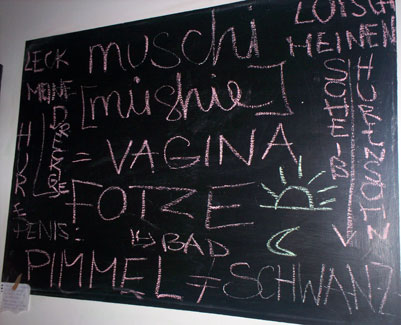 LUTSCH
MEINEN
LECK
MEINE
muschi
[mushie]
= VAGINA
FOTZE
BAD
HURE
PENIS:
PIMMEL
SCHWANZ
HURENSOHN